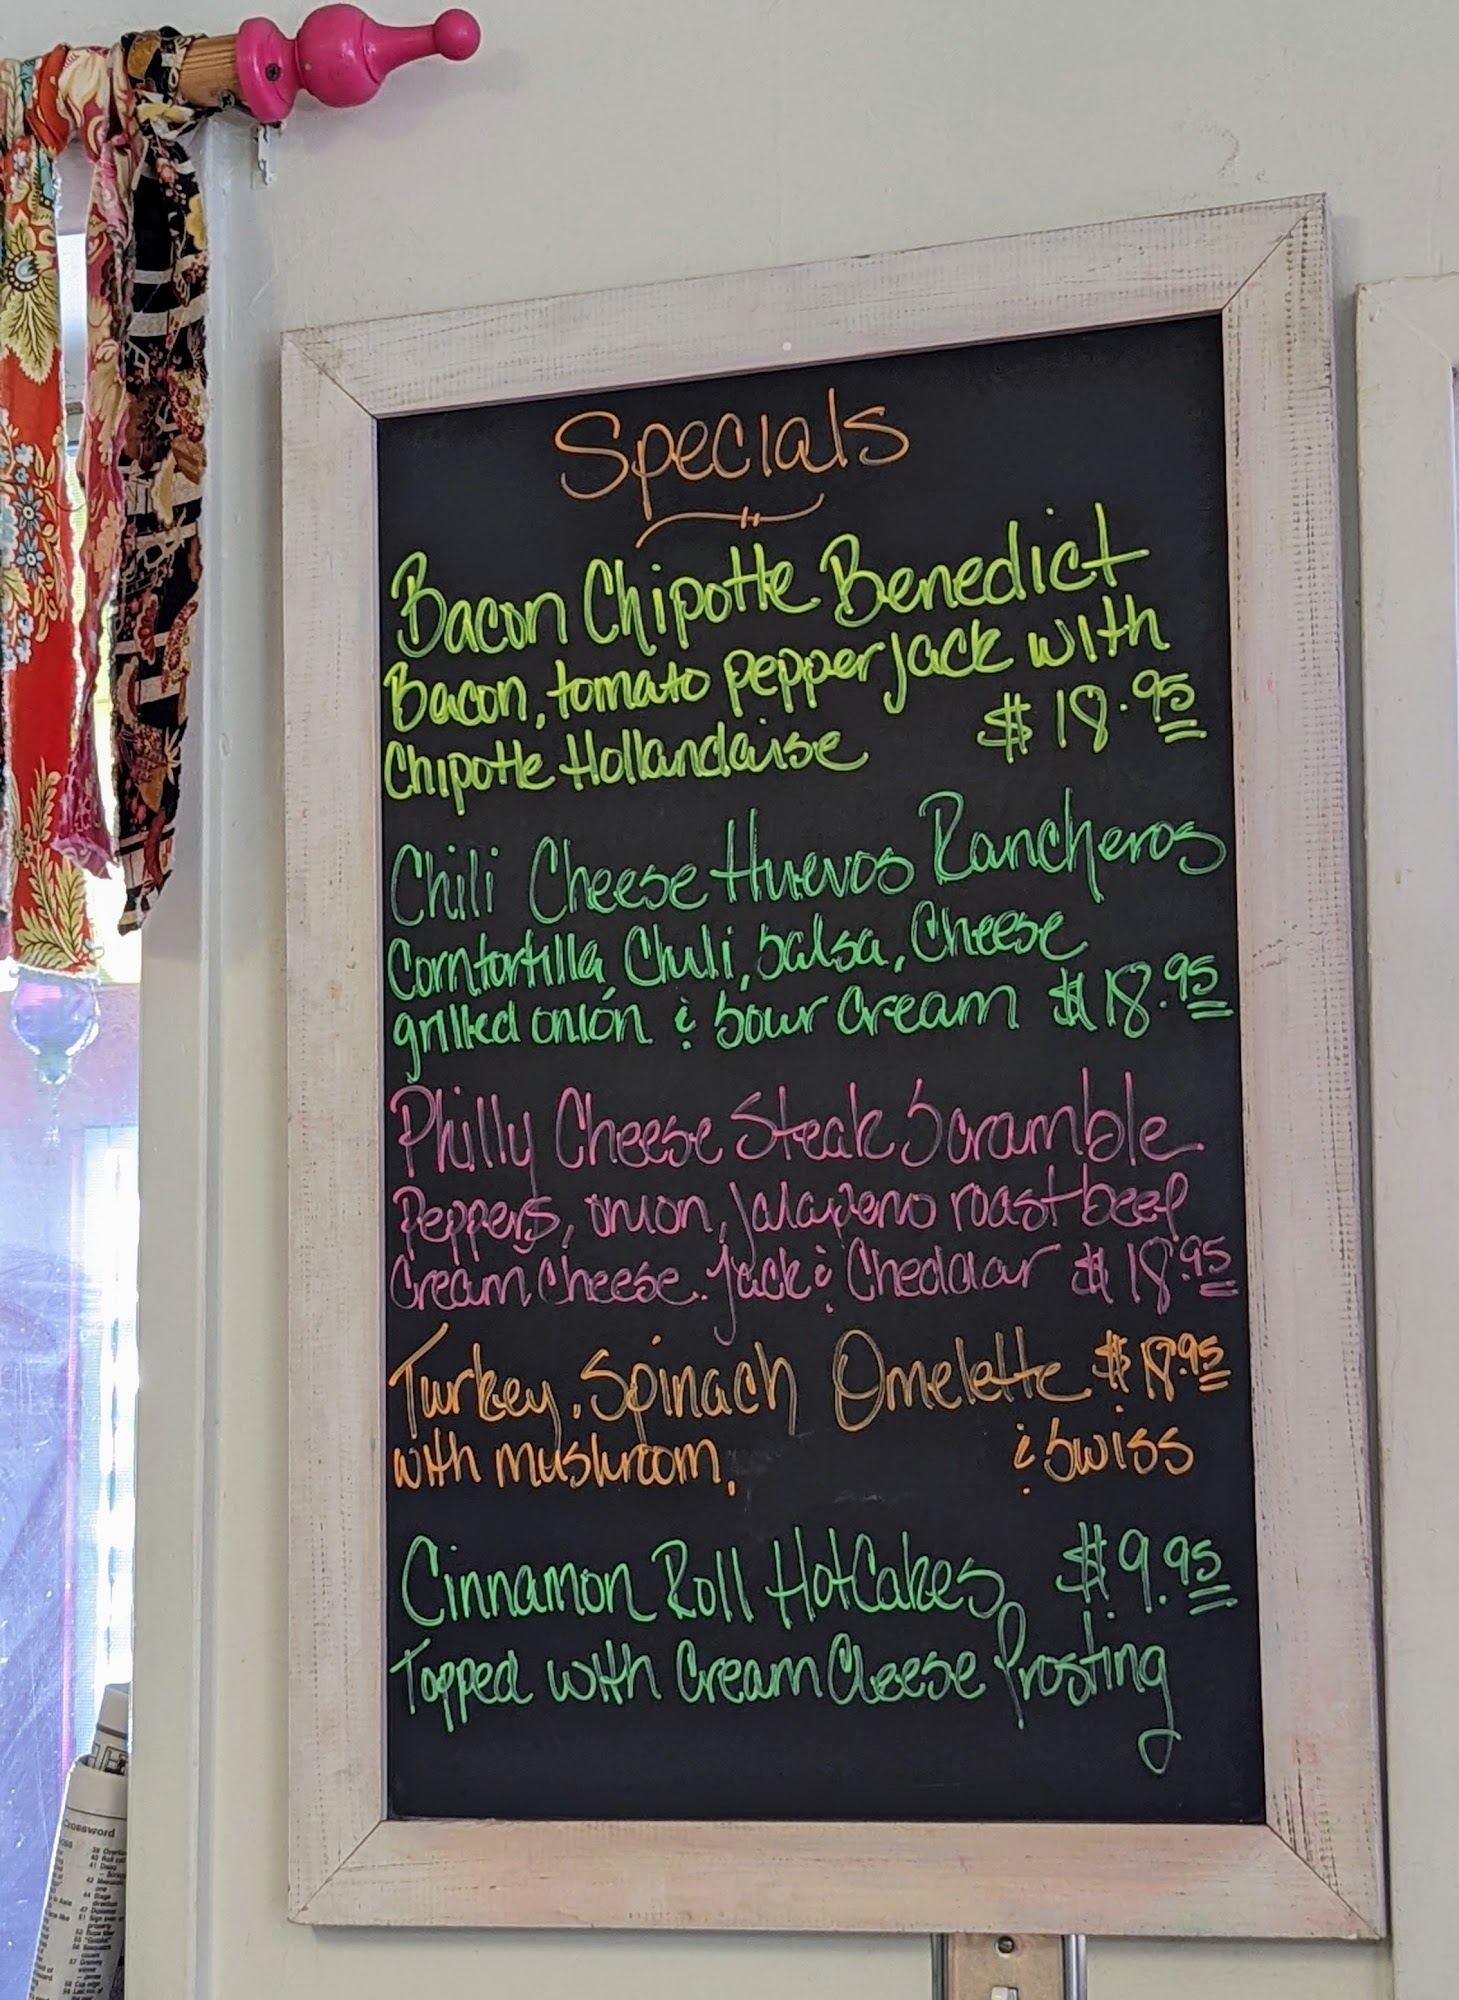 Specials
Bacon Chipotle Benedict
Bacon, tomato pepper jack with
Chipotle Hollandaise $18.95
Chili Cheese Huevos Rancheros
Corn tortilla, Chili, Salsa, Cheese
grilled onion & Sour Cream $18.95
Philly Cheese Steak Scramble
Peppers, onion, Jalapeno roast beef
Cream Cheese. Jack & Cheddar $18.95
Turkey, Spinach Omelette
with mushroom, & Swiss
Cinnamon Roll HotCakes $9.95
Topped with Cream Cheese Frosting
Crossword